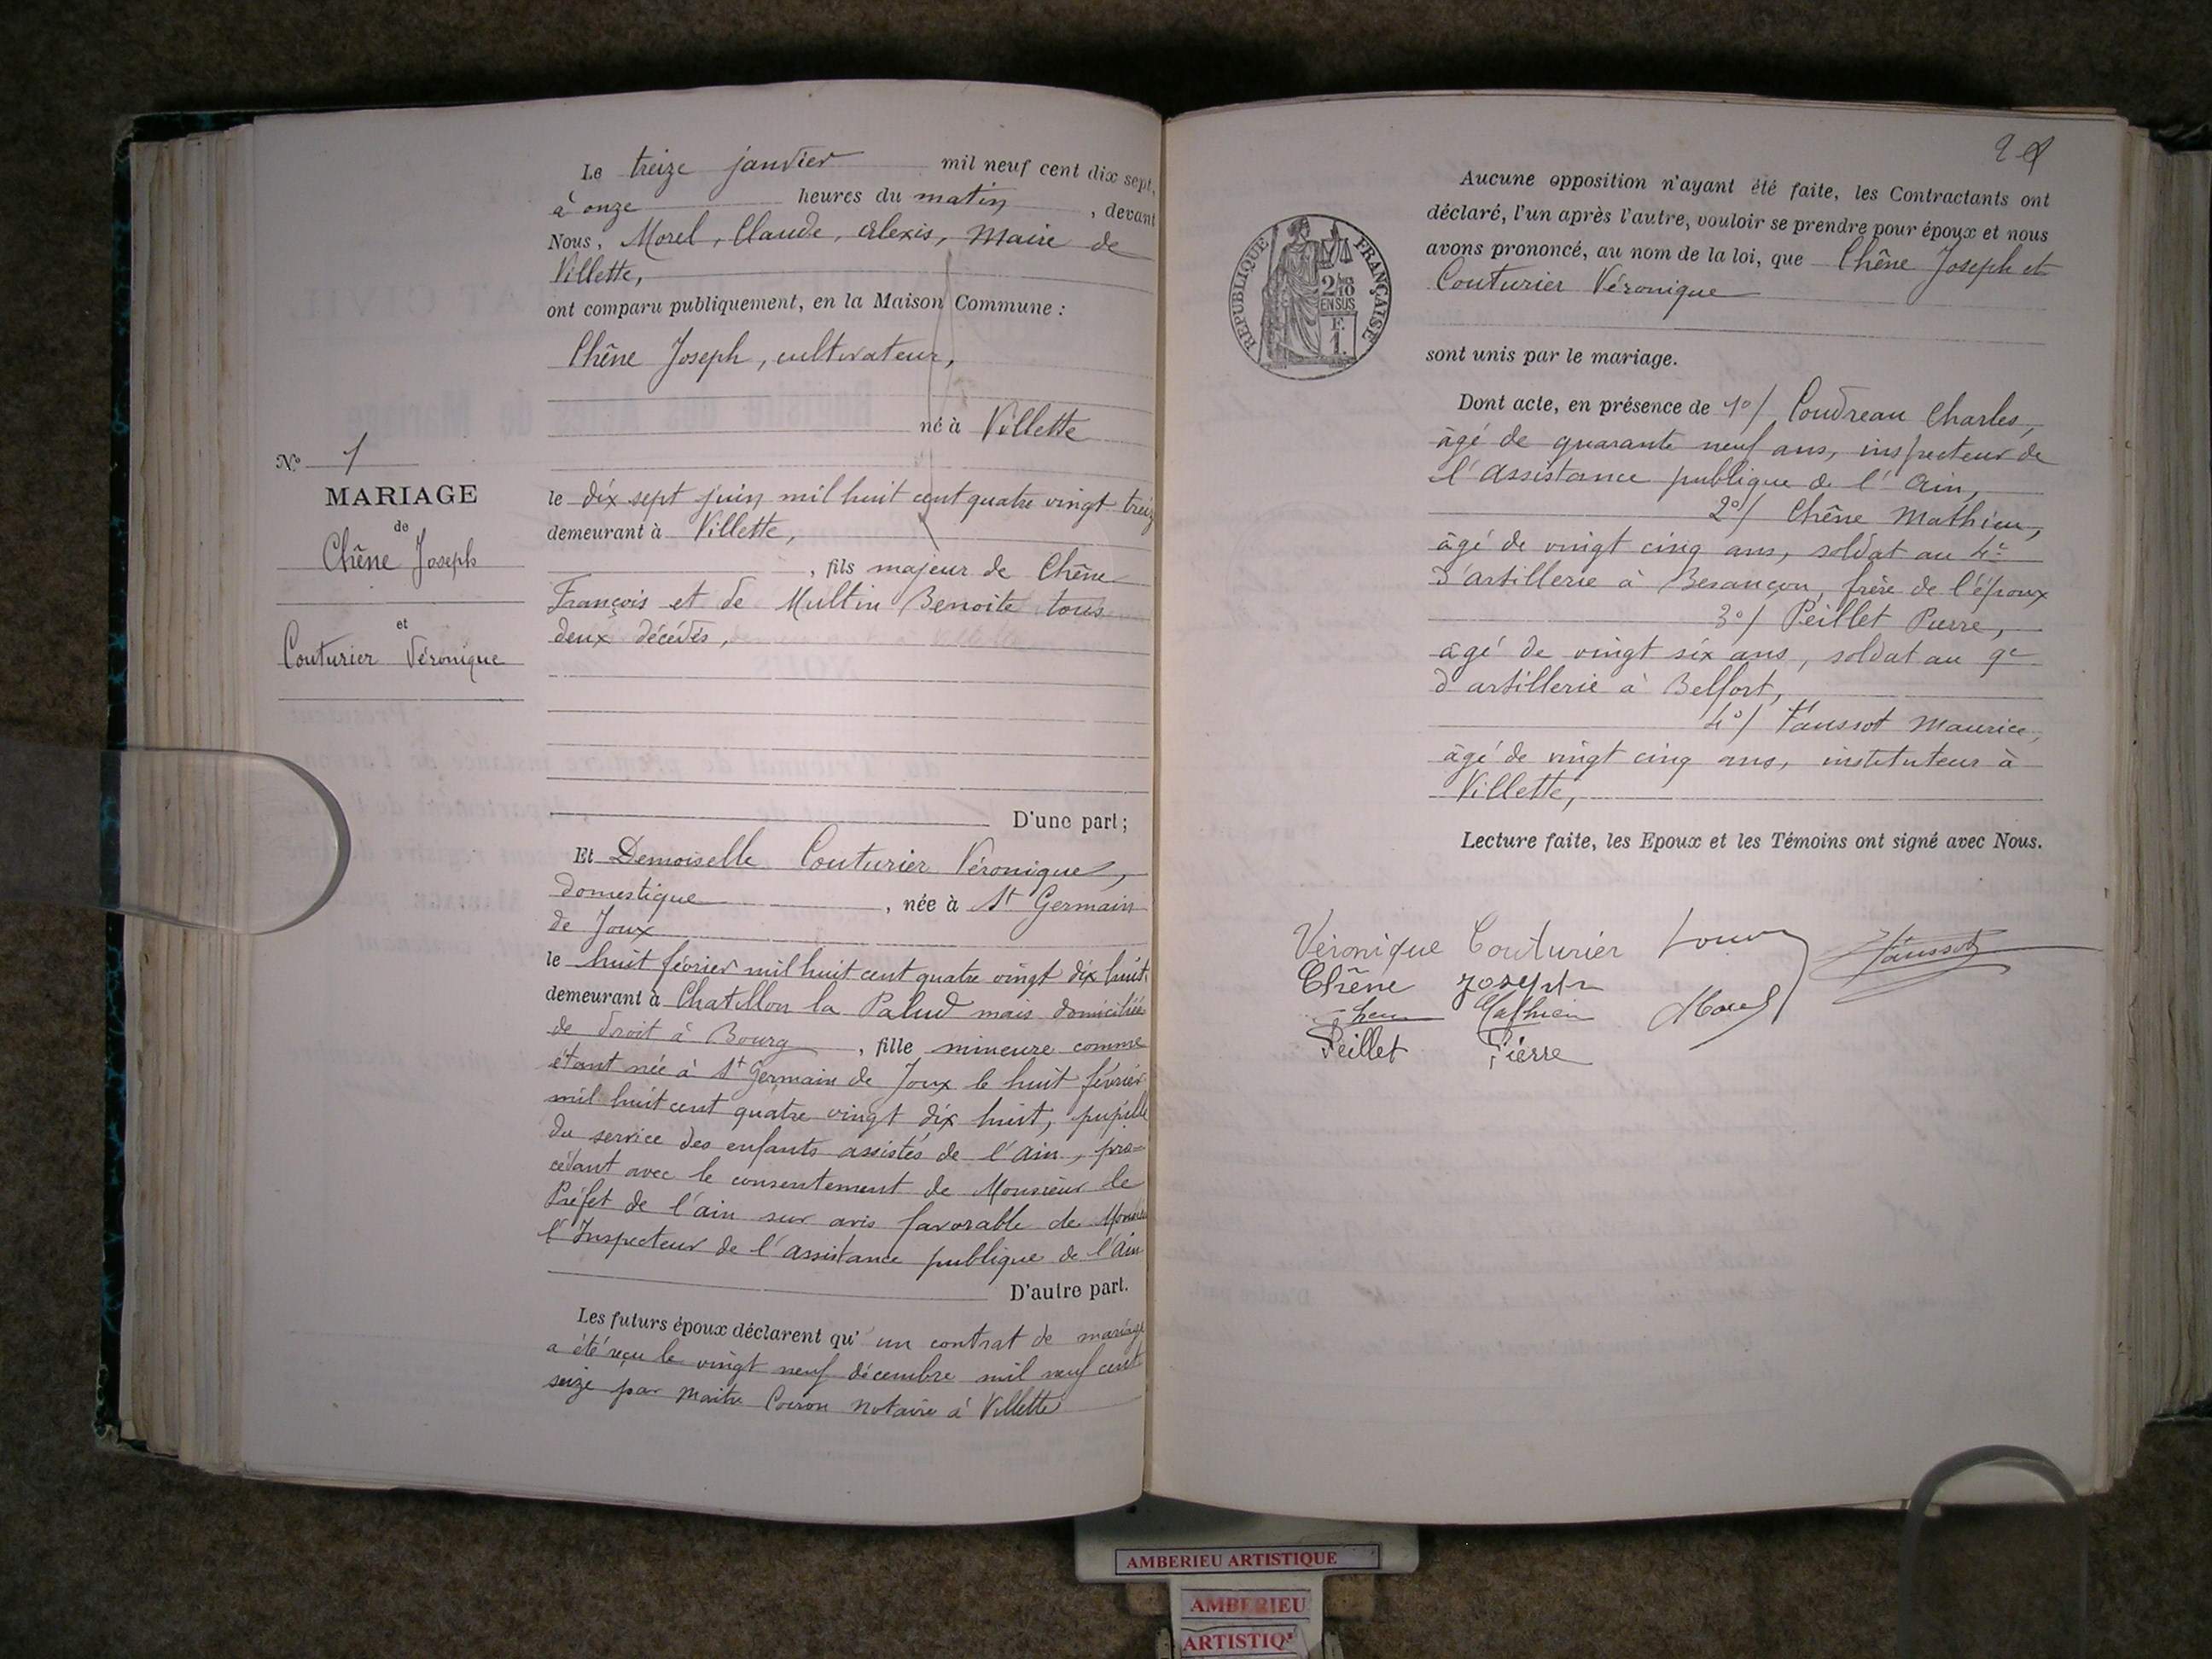 Le treize janvier mil neuf cent dix sept,
à onze heures du matin, devant
Nous, Morel, Claude, Alexis, Maire de
Villette,
ont comparu publiquement, en la Maison Commune :
Chêne Joseph, cultivateur,
né à Villette
le dix sept juin mil huit cent quatre vingt treize
demeurant à Villette,
, fils majeur de Chêne
François et de Multin Benoite tous
deux décédés,
D'une part;
N° 1
MARIAGE
de
Chêne Joseph
et
Couturier Véronique
Et Demoiselle Couturier Véronique,
domestique, née à St Germain
de Joux
le huit février mil huit cent quatre vingt dix huit
demeurant à Chatillon la Palud mais domiciliée
de droit à Bourg, fille mineure comme
étant née à St Germain de Joux le huit février
mil huit cent quatre vingt dix huit, pupille
du service des enfants assistés de l'Ain, pro=
cédant avec le consentement de Monsieur le
Préfet de l'ain sur avis favorable de Monsieur
l'Inspecteur de l'assistance publique de l'Ain
D'autre part.
Les futurs époux déclarent qu'un contrat de mariage
a été reçu le vingt neuf décembre mil neuf cent
seize par Maitre notaire à Villette
2
Aucune opposition n'ayant été faite, les Contractants ont
déclaré, l'un après l'autre, vouloir se prendre pour époux et nous
avons prononcé, au nom de la loi, que Chêne Joseph et
Couturier Véronique
sont unis par le mariage.
REPUBLIQUE FRANÇAISE
2/10
EN SUS
F.
1.
Dont acte, en présence de 1°/ Coudreau Charles,
âgé de quarante neuf ans, inspecteur de
l'assistance publique de l'Ain,
2°/ Chêne Mathieu,
âgé de vingt cinq ans, soldat au 4e
d'artillerie à Besançon, frère de l'époux
3°/ Peillet Pierre,
âgé de vingt six ans, soldat au 9e
d'artillerie à Belfort,
4°/ Faussot Maurice,
âgé de vingt cinq ans, instituteur à
Villette,
Lecture faite, les Epoux et les Témoins ont signé avec Nous.
Véronique Couturier
Faussot
Chêne Joseph
Chene Mathieu
Morel
Peillet Pierre
AMBERIEU ARTISTIQUE
AMBERIEU
ARTISTIQ